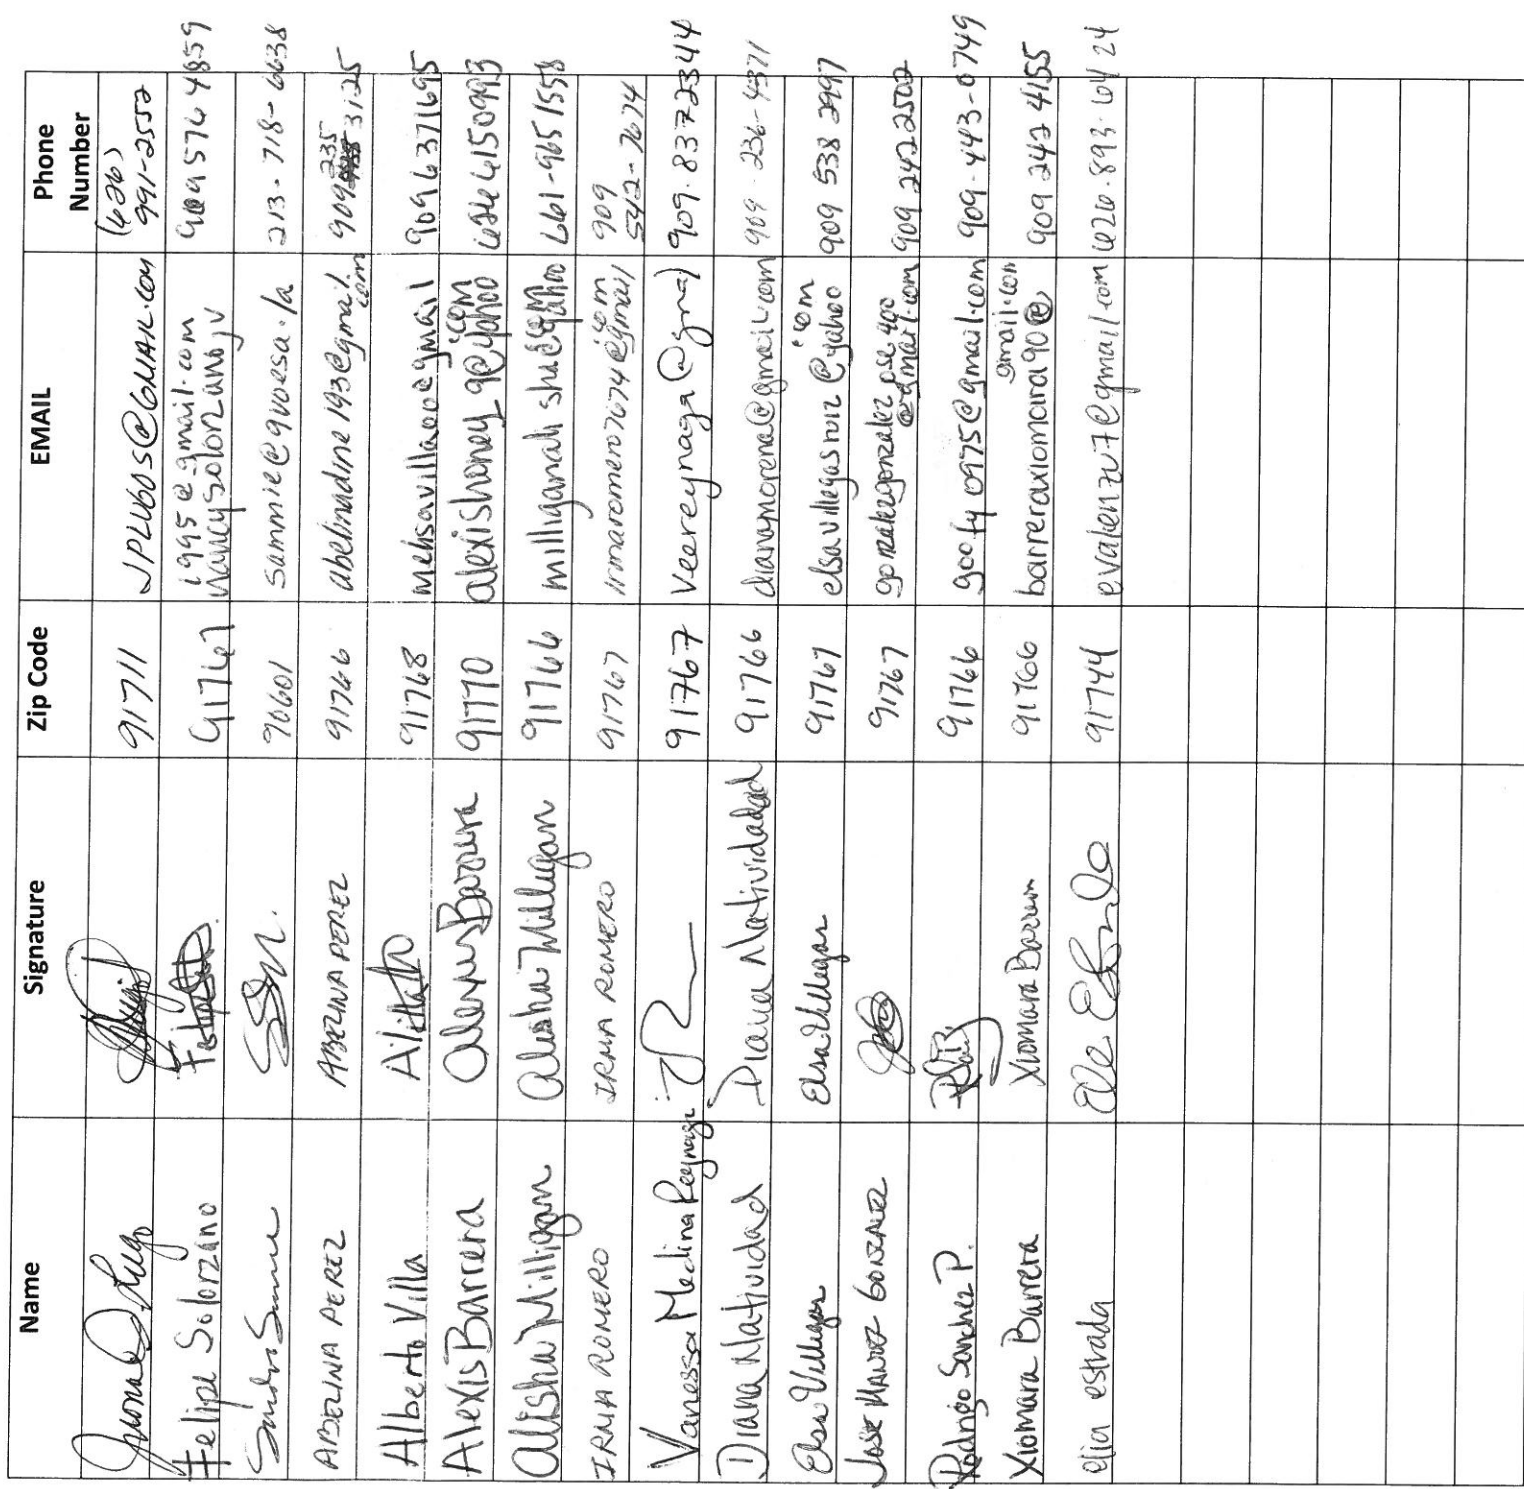 Name Signature Zip Code EMAIL Phone Number
Lugo 91711 JPLUGOS@GMAIL.COM (626) 991-2552
Felipe Solorzano 91767 nancysolorzano,jv 1995@gmail.com 909 576 4859
90601 sammie@gvoesa.la 213-718-6638
ABELINA PEREZ ABELINA PEREZ 91766 abelinadine193@gmail.com 909 235 3125
Alberto Villa 91768 909 6371695
Alexis Barrera Alexis Barrera 91770 alexishoney_9@yahoo.com 626 6150993
Alisha Milligan Alisha Milligan 91766 661-965 1558
IRMA ROMERO IRMA ROMERO 91767 irmaromero7674@gmail.com 909 542-7674
Vanessa Medina Reynaga 91767 veereynaga@gmail 909.8372344
Diana Natividad Diana Natividadad 91766 dianamorena@gmail.com 909-236-4371
Elsa Villegas Elsa Villegas 91767 elsavillegasruiz@yahoo.com 909 538 2997
91767 909 242 2502
Rodrigo Sanchez P. 91766 goofy0975@gmail.com 909-443-0749
Xiomara Barrera Xiomara Barrera 91766 barreraxiomara90@gmail.com 909 242 4155
elia estrada 91744 626.893.6424